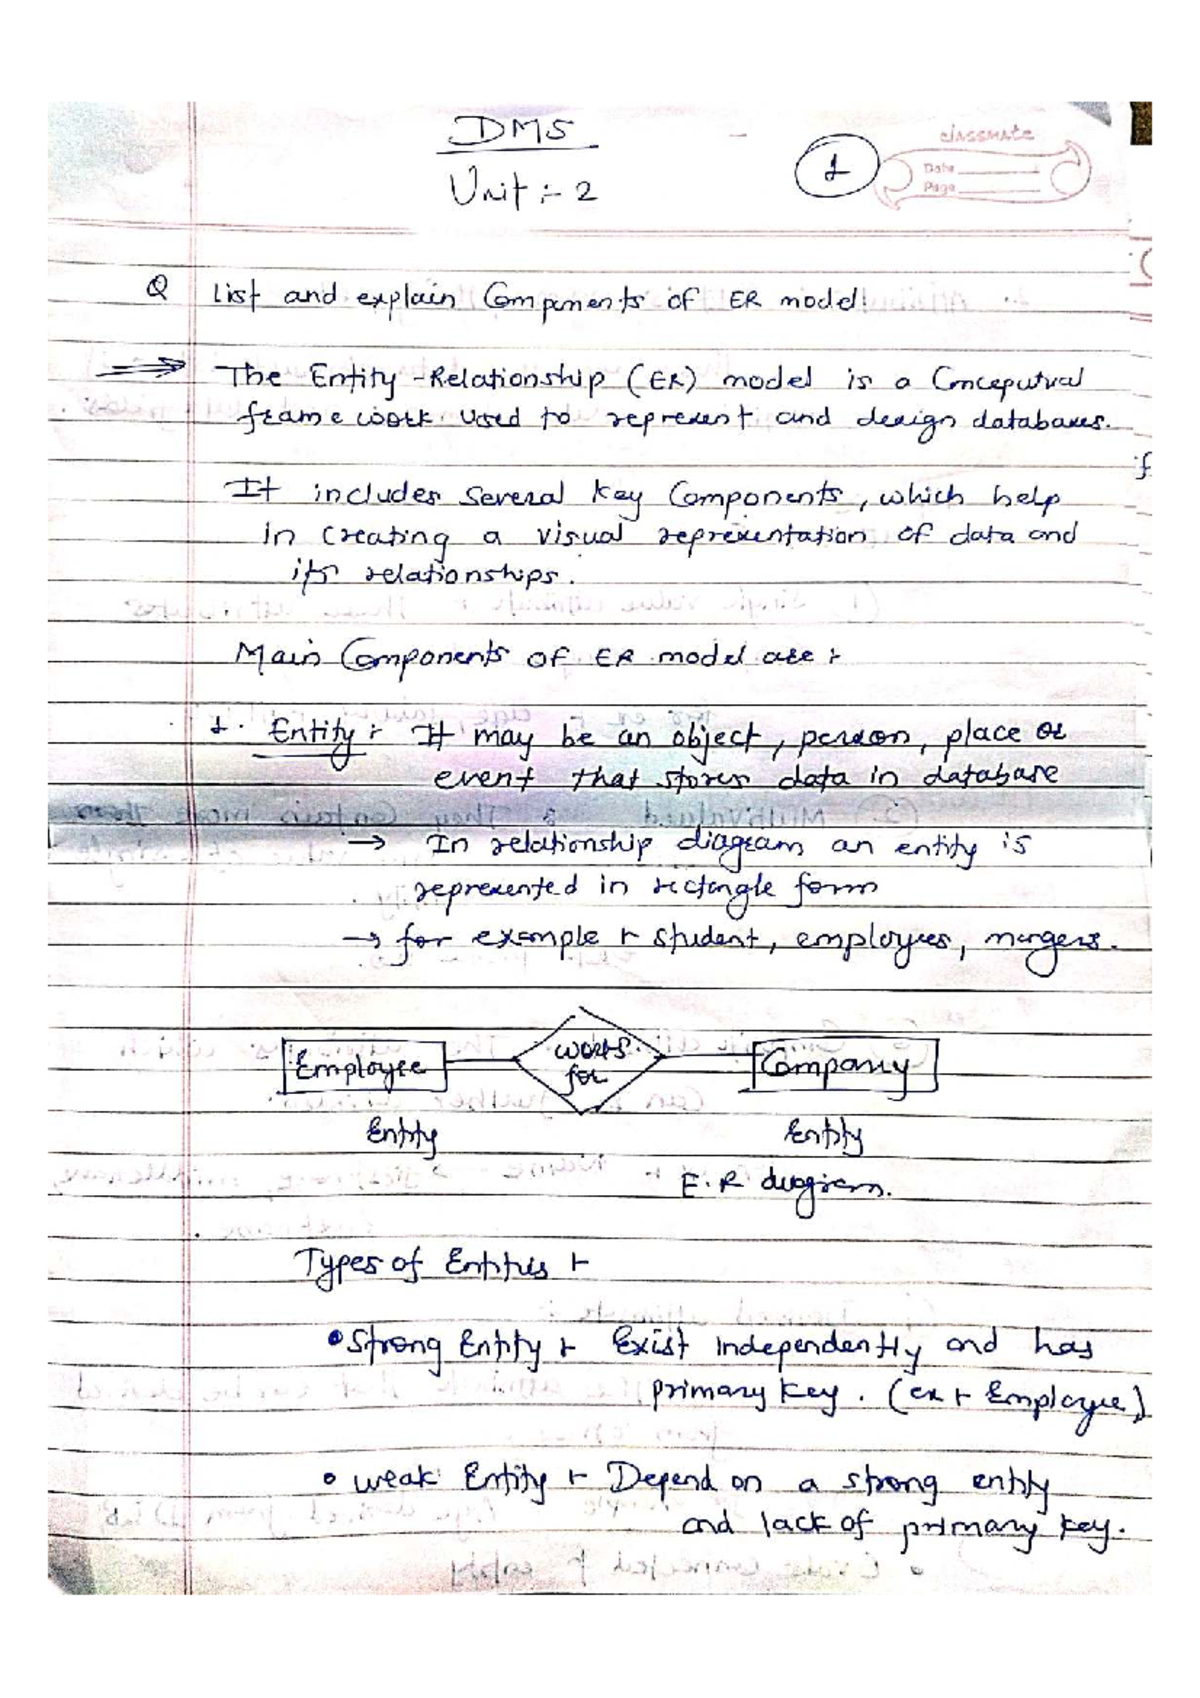 DMS
Unit :- 2
1
classmate
Date
Page
Q List and explain Components of ER model
The Entity-Relationship (ER) model is a Conceputual
frame work used to represent and design databases.
It includes several key Components, which help
in creating a visual representation of data and
its relationships.
Main Components of ER model are :-
1. Entity :- It may be an object, person, place or
event that stores data in database
→ In relationship diagram an entity is
represented in rectangle form
→ for example :- student, employees, mangers.
Employee works for Company
Entity Entity
E.R diagram.
Types of Entities :-
• Strong Entity :- Exist independently and has
primary key. (ex :- Employee)
• weak Entity :- Depend on a strong entity
and lack of primary key.